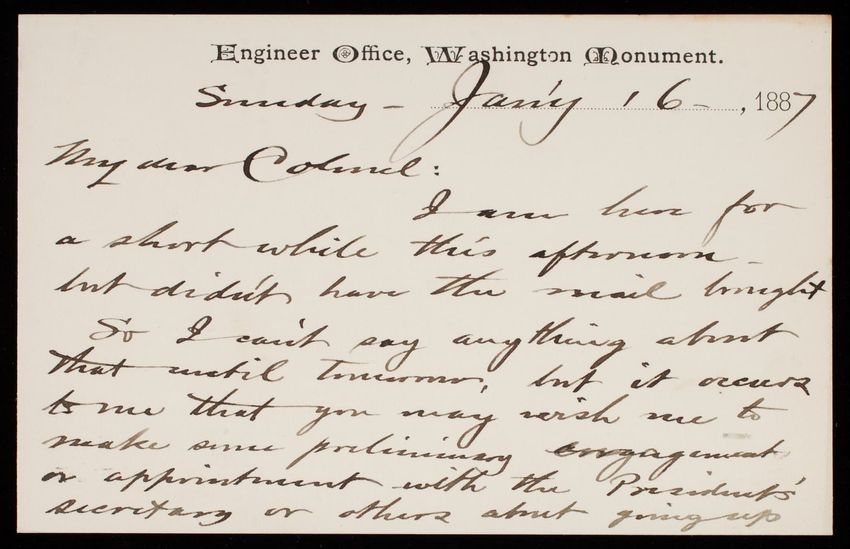 Engineer Office, Washington Monument.
Sunday – Jan'y 16 –, 1887
My dear Colonel:
I am here for
a short while this afternoon –
but didn't have the mail brought
So I can't say anything about
that until tomorrow, but it occurs
to me that you may wish me to
make some preliminary engagement
or appointment with the President's
secretary or others about going up